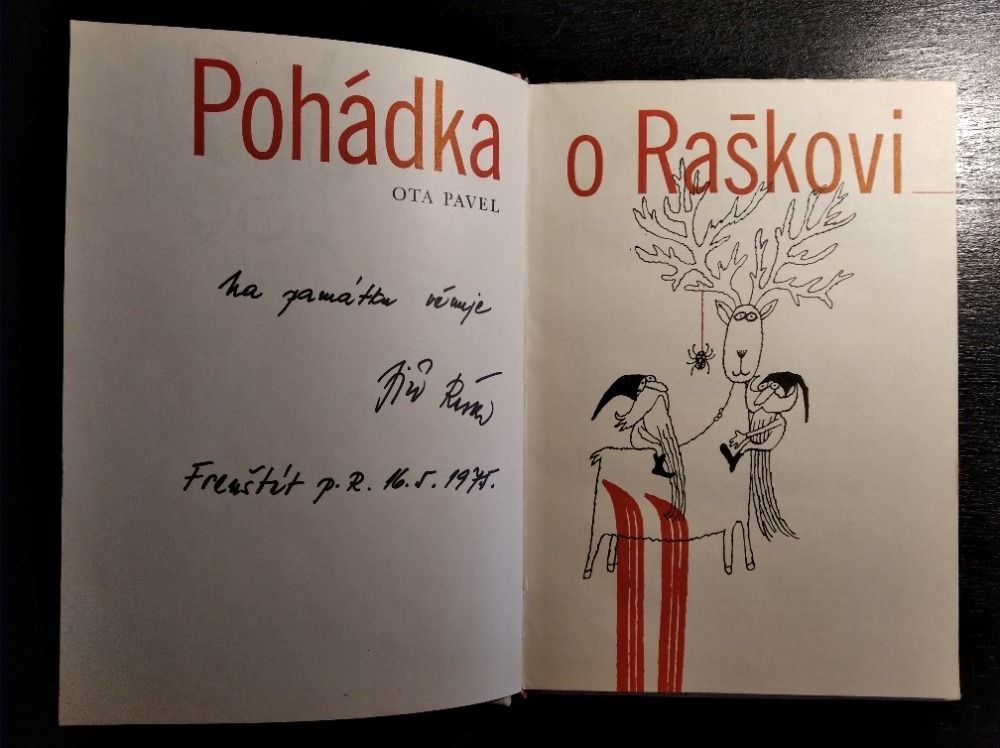 Pohádka
OTA PAVEL
Na památku věnuje
Jiří Raška
Frenštát p. R. 16. 5. 1975.
o Raškovi